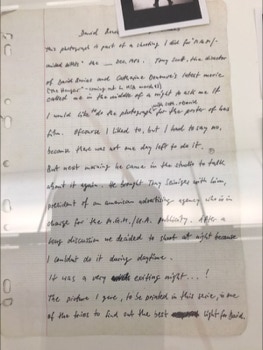 David
This photograph is part of a shooting I did for
Tony Scott, the director
of David Bowie and Catherine Deneuve's latest movie
("The Hunger" - coming out in USA
called me in the middle of a night to ask me if
I would like "to do the photograph" for the poster of his
film. Of course I liked to, but I had to say no,
because there was not one day left to do it.
But next morning he came in the studio to talk
about it again. He brought Tony with him,
president of an american advertising agency who is in
charge for the M.G.M./U.A. publicity. After a
long discussion we decided to shoot at night because
I couldn't do it during daytime.
It was a very exiting night...!
The picture I gave, to be printed in this serie, is one
of the tries to find out the best light for David.